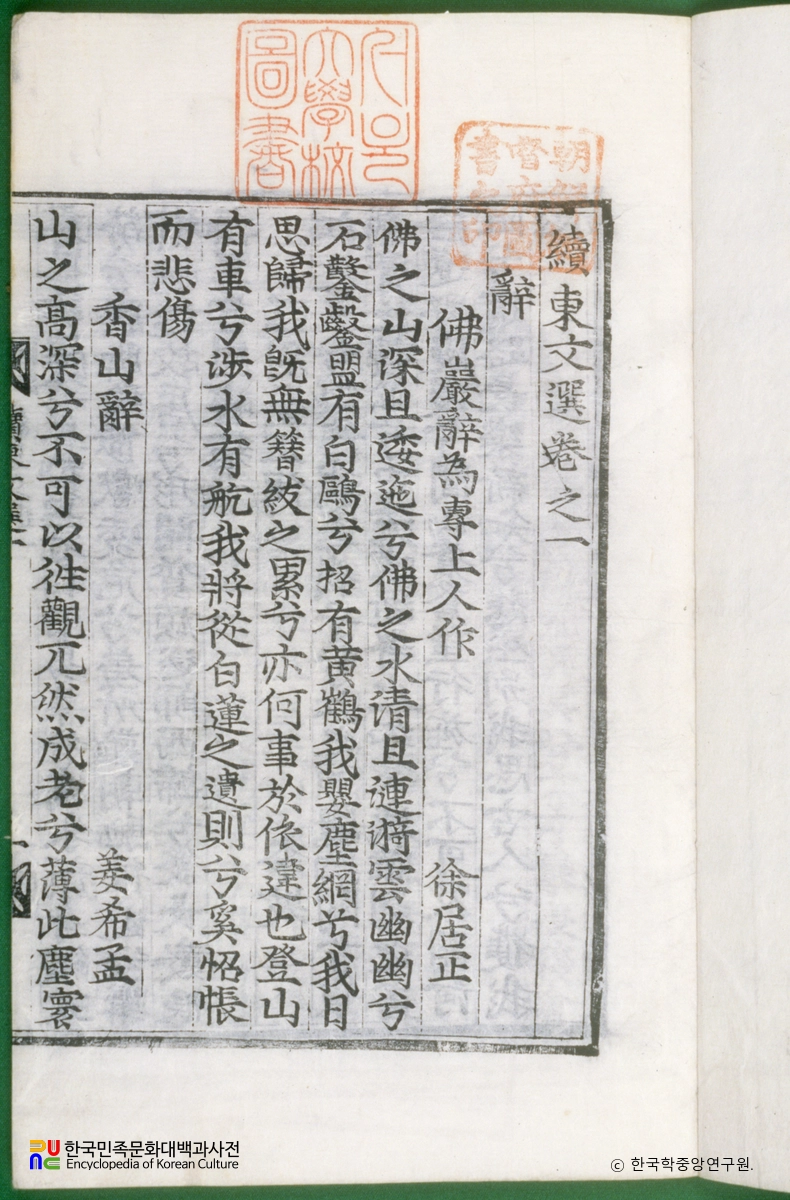 續東文選卷之一
辭
佛巖辭為專上人作 徐居正
佛之山深且逶迤兮佛之水清且漣漪雲幽幽兮
石鑿鑿盟有白鷗兮招有黃鶴我嬰塵網兮我日
思歸我旣無簪紱之累兮亦何事於依違也登山
有車兮涉水有航我將從白蓮之遺則兮奚怊悵
而悲傷
香山辭 姜希孟
山之高深兮不可以徃觀兀然成老兮薄此塵寰
朝鮮
督府圖
書之印
大學校
圖書
한국민족문화대백과사전
Encyclopedia of Korean Culture
ⓒ 한국학중앙연구원.